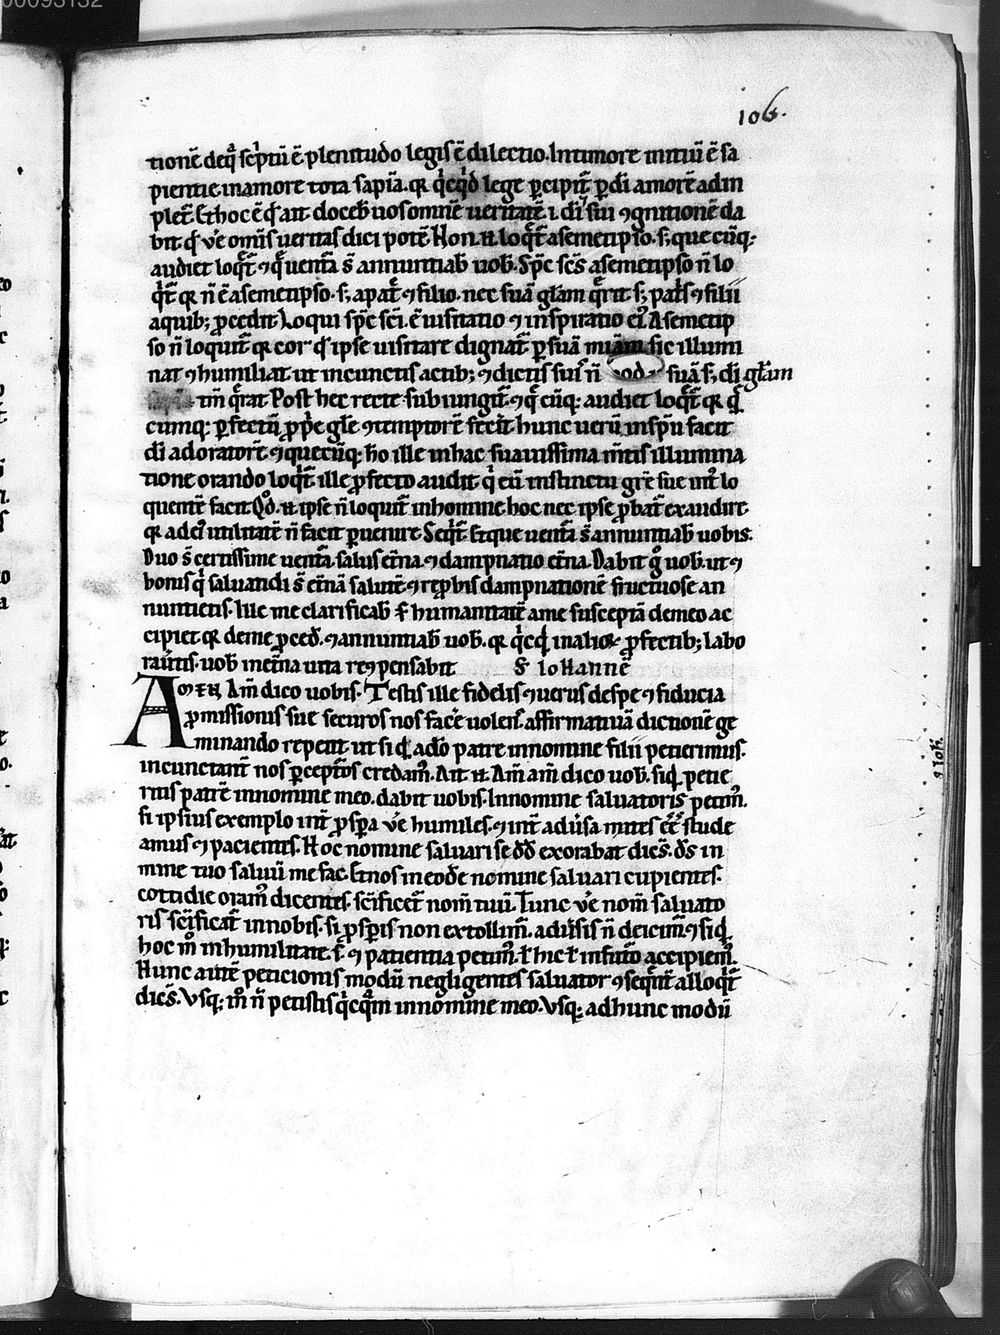 00093132
106.
tionē. deq̄ sc̄ptū ē. plenitudo legis ē dilectio. In timore initiū ē sa
pientie. in amore tota sapīa. qꝛ q̇cq̇d lege p̄cipit᷒. p̱ dī amorē adīn
plet᷒. Et hoc ē q̇d ait. doceb̄ uos omnē ueritatē .i. dī sui ꝯgnitionē da
bit q̇d ūe om̄is ueritas dici potē. Non .n. loq̄t᷒ a semetipso. s; que cūq;
audiet loq̄t᷒ ꝯ q̄ uent᷒a s̄ annuntiab̄ uob̄. Sp̄c sc̄s a semetipso n̄ lo
q̄t᷒ qꝛ n̄ ē a semetipso. s; a pat᷒ ꝯ filio. nec suā gl̄am q̄rit s; pat᷒s ꝯ filii
a quib; p̱cedit. Loqui sp̄c sc̄i. ē uisitatio ꝯ inspiratio ei᷒. A semetip
so n̄ loquit᷒ qꝛ cor q̇d ipse uisitare dignat᷒ p̱ suā mīam sic illumi
nat ꝯ humiliat. ut in cunctis actib; ꝯ dictis suis n̄ suā s; dī gl̄am
tm̄ q̄rat. Post hec recte subiungit᷒. ꝯ q̄ cūq; audiet loq̄t᷒ qꝛ q̄
cumq; p̱fectū p̱p̱e gl̄e ꝯtemptorē fec̄it. hunc uerū in sp̄u facit
dī adoratorē. ꝯ quecūq; h̄o ille in hac suauissima m̄tis illumina
tione orando loq̄t᷒. ille p̱fecto audit q̇ eū instinctu gr̄e sue int᷒ lo
quentē facit. Q̄d .n. ipse n̄ loquit᷒ in homine. hoc nec ipse p̱bat᷒ exaudire.
qꝛ ad ei᷒ utilitatē n̄ facit peruenire. Seq̄t᷒. Et que uent᷒a s̄ annuntiab̄ uobis.
Duo s̄ certissime uent᷒a. salus et̄na. ꝯ dampnatio et̄na. Dabit g̊ uob̄. ut ꝯ
bonis q̇ saluandi s̄ et̄nā salutē. ꝯ rep̱bis dampnationē fructuose an
nuntietis. Ille me clarificab̄ .s. humanitatē a me susceptā de meo ac
cipiet. qꝛ de me p̱ced̄. ꝯ annuntiab̄ uob̄. qꝛ q̇cq̇d in alioꝝ p̱fectib; labo
rauitis. uob̄ in et̄na uita reꝯpensabit S. IoHannē
AmEN Am̄ dico uobis. Testis ille fidelis ꝯ uerus de spe ꝯ fiducia
p̱missionis sue securos nos fac̄e uolens. affirmatiuā dictionē ge
minando repetit. ut si q̇d a dō patre in nomine filii petierimus.
incunctant᷒ nos p̱cept᷒os credam᷒. Ait .n. Am̄ am̄ dico uob̄. siq̇d petie
ritis patrē in nomine meo. dabit uobis. In nomine saluatoris petim᷒.
si ipsius exemplo int᷒ p̱sp̱a ūe humiles. ꝯ int᷒ adūsa mites ēē stude
amus ꝯ pacientes. Hoc nomine saluari se dd̄ exorabat dices. ds̄ in
nomine tuo saluū me fac. Et nos in eodē nomine saluari cupientes.
cottidie oram᷒ dicentes. sc̄ificet᷒ nom̄ tuū. Tunc ūe nom̄ saluato
ris sc̄ificat᷒ in nobis. si p̱sp̱is non extollim᷒. adūsis n̄ deicim᷒. ꝯ siq̇d
hoc m̊ in humilitate .s. ꝯ patientia petim᷒. ł hic ł in futo accipiem᷒.
Nunc autē peticionis modū negligentes saluator ꝯseq̄nt᷒ alloq̄t᷒
dices. Vsq; m̊ n̄ petistis q̇cq̄m in nomine meo. Vsq; adhunc modū